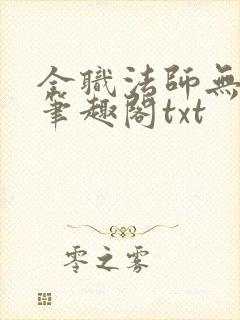 全職法師無
筆趣閣txt
零之雾